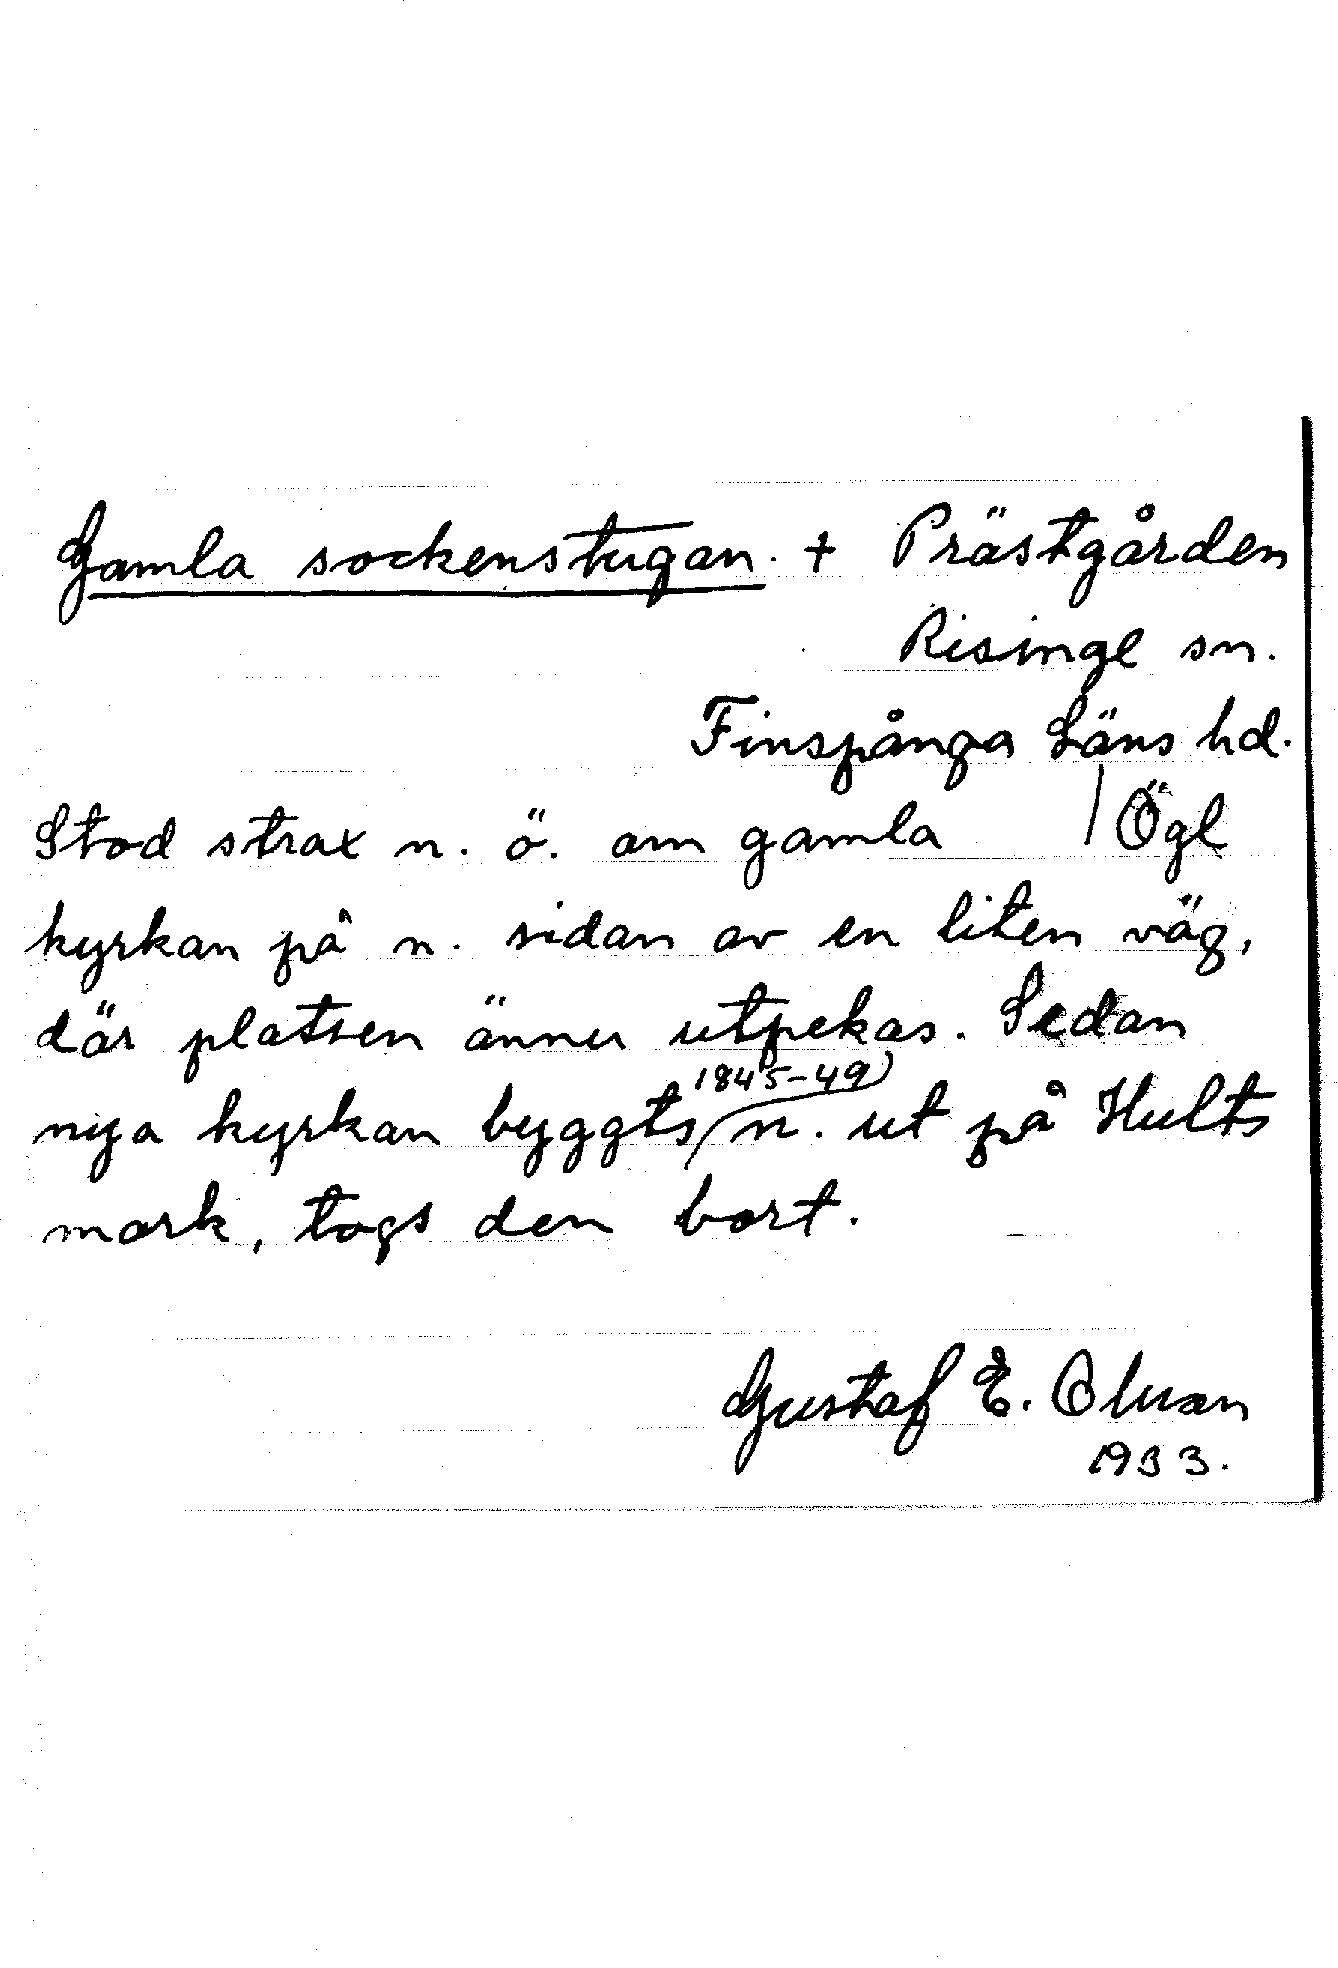 Gamla sockenstugan. + Prästgården
Risinge sn.
Finspånga Läns hd.
Stod strax n. ö. om gamla / Ögl
kyrkan på n. sidan av en liten väg,
där platsen ännu utpekas. Sedan
1845-49
nya kyrkan byggts n. ut på Hults
mark, togs den bort.
Gustaf E.
1933.